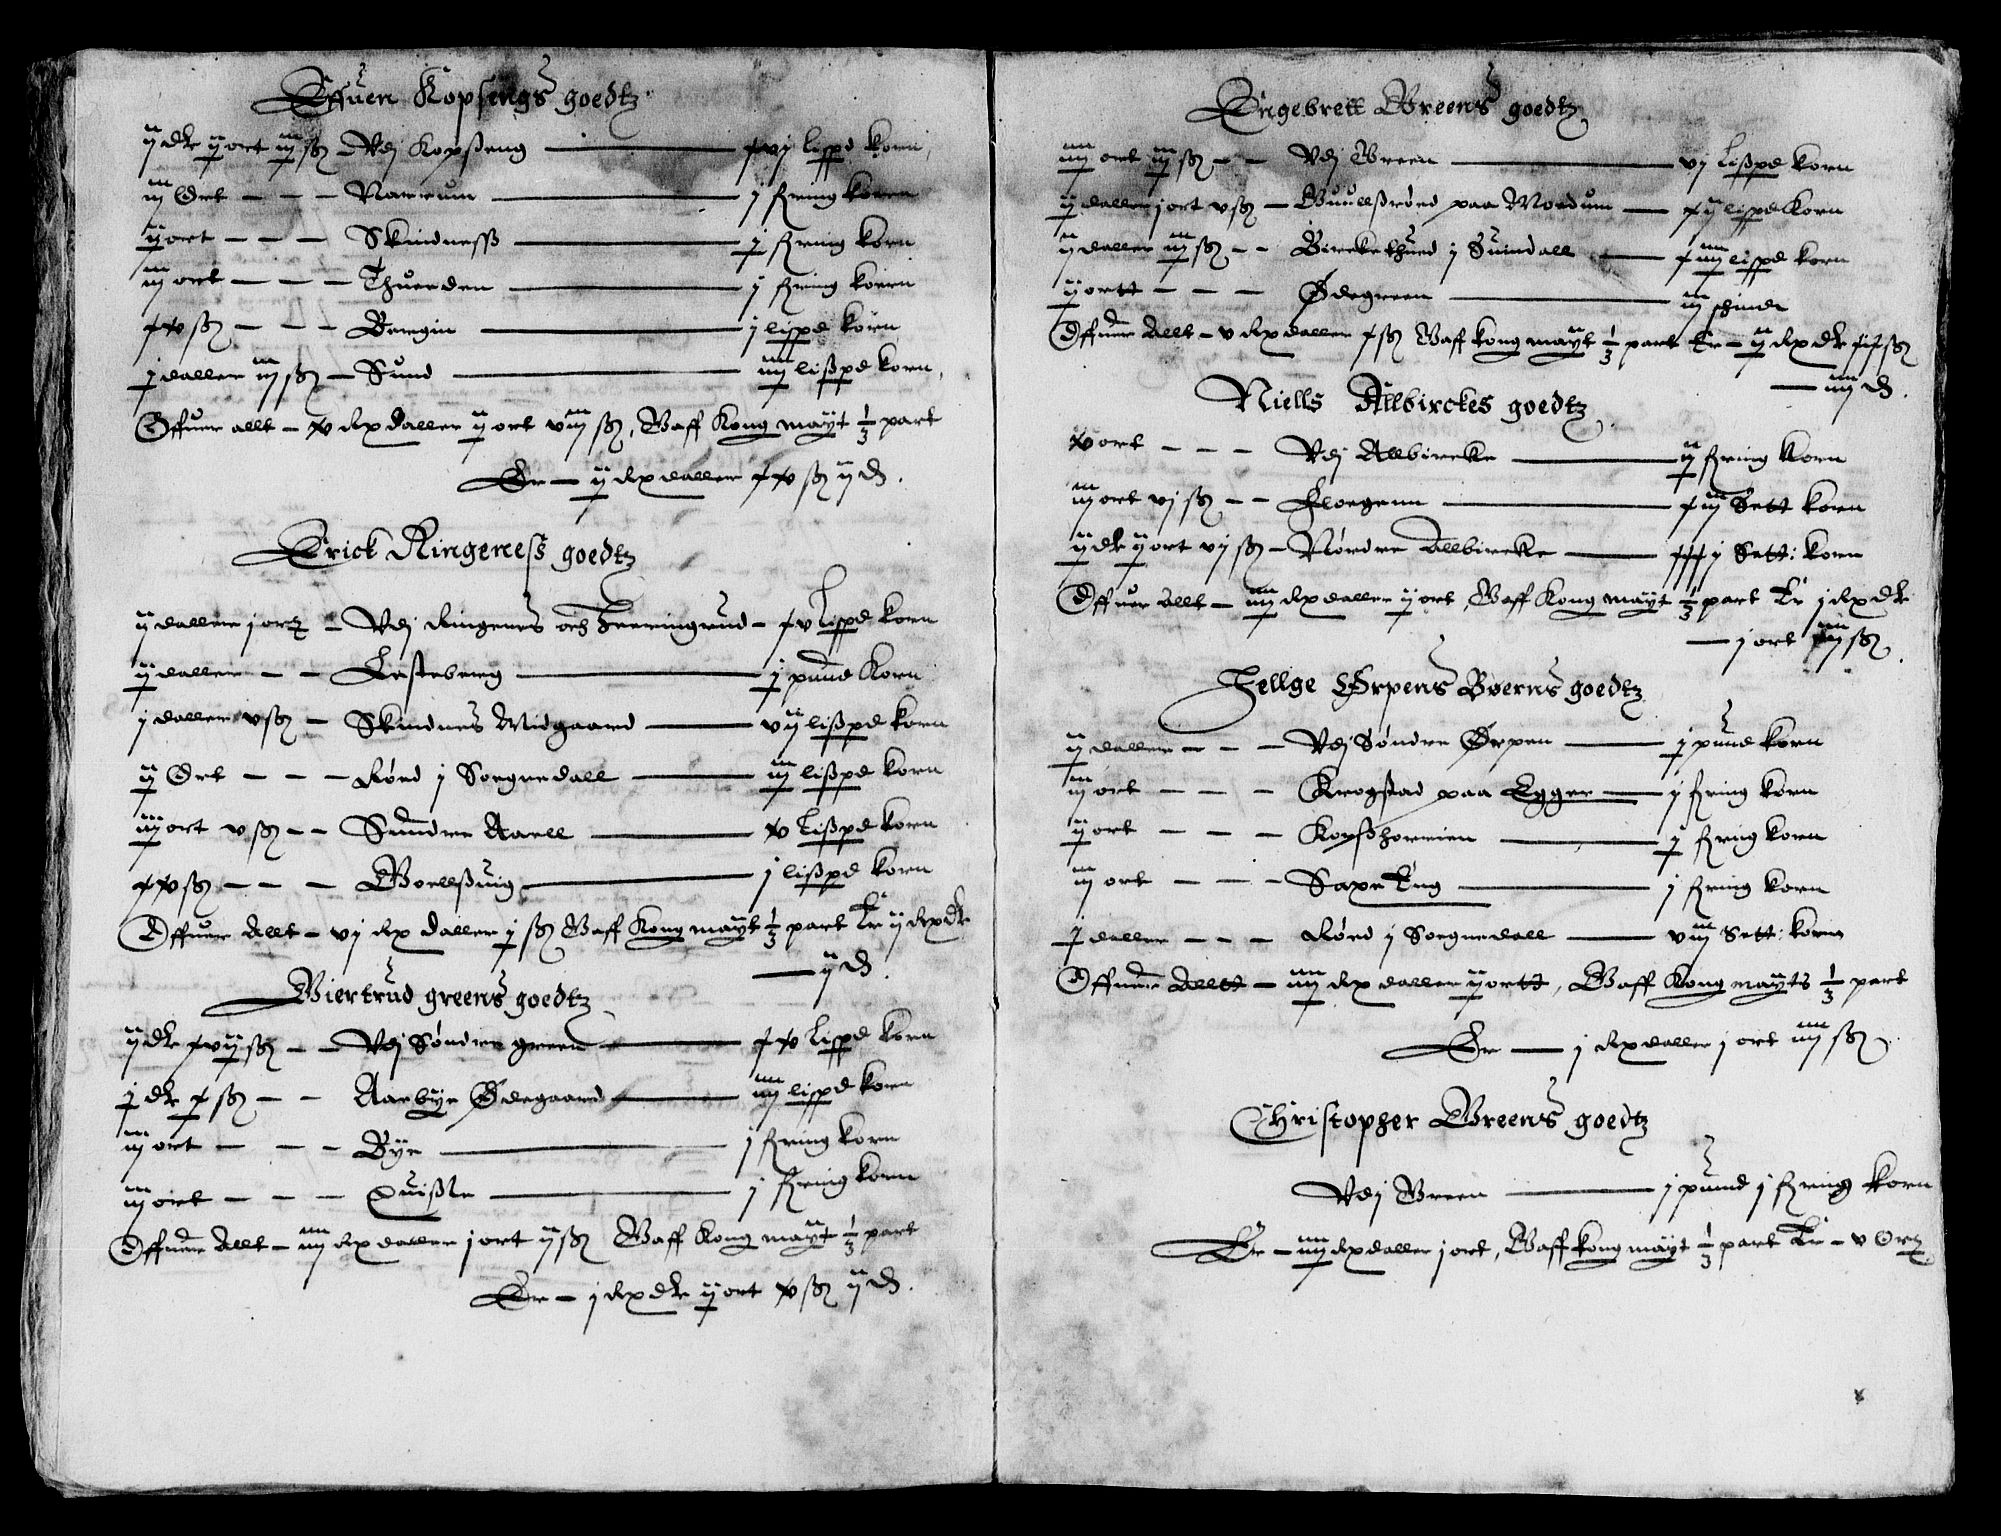 Effuen Kopsengs goedtz
ij dlr ij ort iij ß – Vdj Kopßeng — xvj lispd korn,
iij Ort – – – Narrum — j fring korn
ij ort – – – Skindness — j fring korn
iij ort – – – Thuerden — j fring korn
xv ß – – – Bregin — j lispd korn
j daller iij ß – Sund — iiij lißpd korn,
Offuer allt – v rx daller ij ort viij ß, Haff Kong mayt 1/3 part
Er – ij rx daller xv ß ij d.
Erick Ringeness goedtz
ij daller j ort – Vdj Ringenes och Feeringrud – xv lispd korn
ij daller – – Ersteberg — j pund Korn
j daller v ß – Skindnes Midgaard — vij lißpd korn
ij Ort – – – Rørd j Sognedall — iij lißpd korn
iij ort v ß – – Sundre Aaell — v lißpd korn
xv ß – – – Boellßuig — j lißpd korn
Offuer Allt – vj rx daller j ß Haff Kong mayt 1/3 part Er ij rx dlr
— ij d.
Giertrud greens goedtz
ij dlr xvij ß – – Vdj Søndre green — xv lispd korn
j dlr x ß – – Aarbye Ødegaard — iiij lispd korn
iij ort – – – Bye — j fring korn
iij ort – – – Quißle — j fring korn
Offuer Allt – iiij rx daller j ort ij ß Haff Kong mayt 1/3 part
Er – j rx dlr ij ort v ß ij d.
Engebrett Greens goedtz
iiij ort iij ß – – Vdj Green — vj lißpd korn
ij daller j ort v ß – Guullßrørd paa Modum — xij lispd korn
ij daller iij ß – – Bireke thued j Suindall — xiiij lispd korn
ij ortt – – – Ødegreen — iij schindr
Offuer Allt – v rx daller x ß Haff kong mayt 1/3 part Er – ij rx dlr ß
— iiij d.
Niells Allbirckes goedtz
v ort – – – Vdj Allbircke — ij fring korn
iij ort vj ß – – Floegenn — xiij Sett korn
ij dlr ij ort vj ß – Nørdre Allbircke — xxxj Sett: korn
Offuer Allt – iiij rx daller ij ort Haff Kong mayt 1/3 part Er j rx dlr
— j ort iiij ß.
Hellge Ørpens Børns goedtz
ij daller – – – Vdj Søndre Ørpen — j pund korn
iij ort – – – Krogstad paa Egger — j fring korn
ij ort – – – Kopßhorrien — j fring korn
iij ort – – – Saxe Eng — j fring korn
j daller – – – Rørd j Sognedall — viij Sett: korn
Offuer Alltt – iiij rx daller ij ortt, Haff Kong mayts 1/3 part
Er — j rx daller j ort iiij ß.
Christopher Greens goedtz
Vdj Green — j pund j fring korn
Er – iiij rx daller j ort, Haff kong mayt 1/3 part Er – v Ort